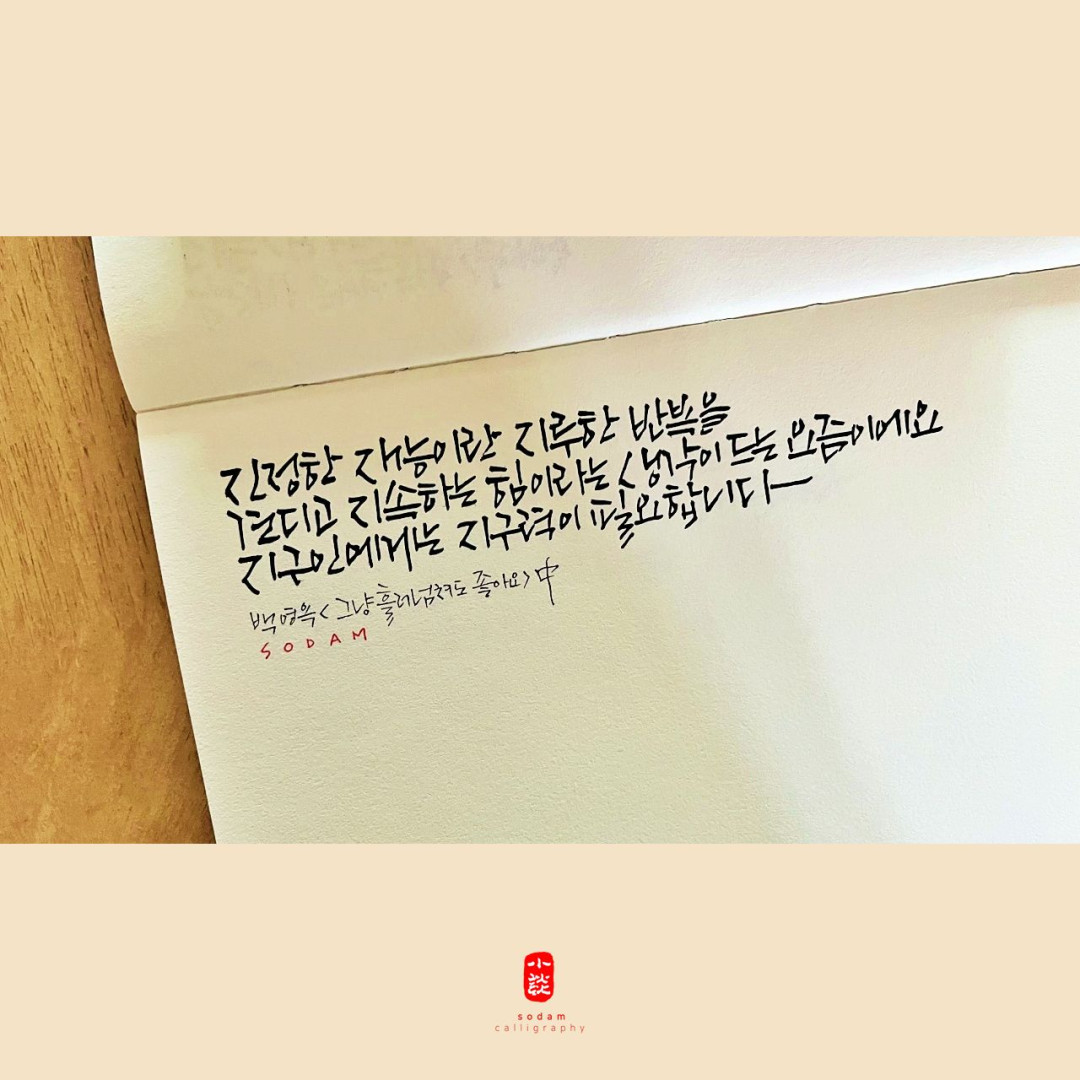 진정한 재능이란 지루한 반복을
견디고 지속하는 힘이라는 생각이 드는 요즘이에요
지구인에게는 지구력이 필요합니다
백영옥 <그냥 흘러넘쳐도 좋아요> 中
SODAM
小談
sodam
calligraphy